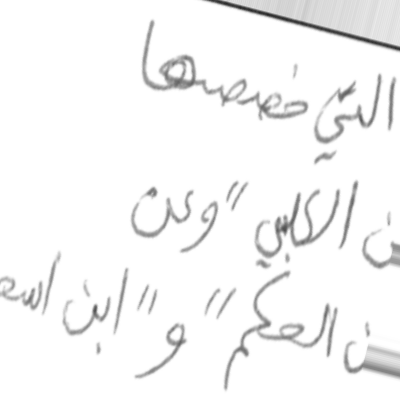 التي خصصها
الكلبي " وعن
الحكم " و " ابن